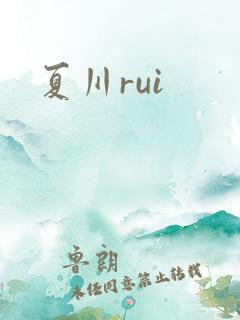 夏川rui
鲁朗
未经同意禁止转载